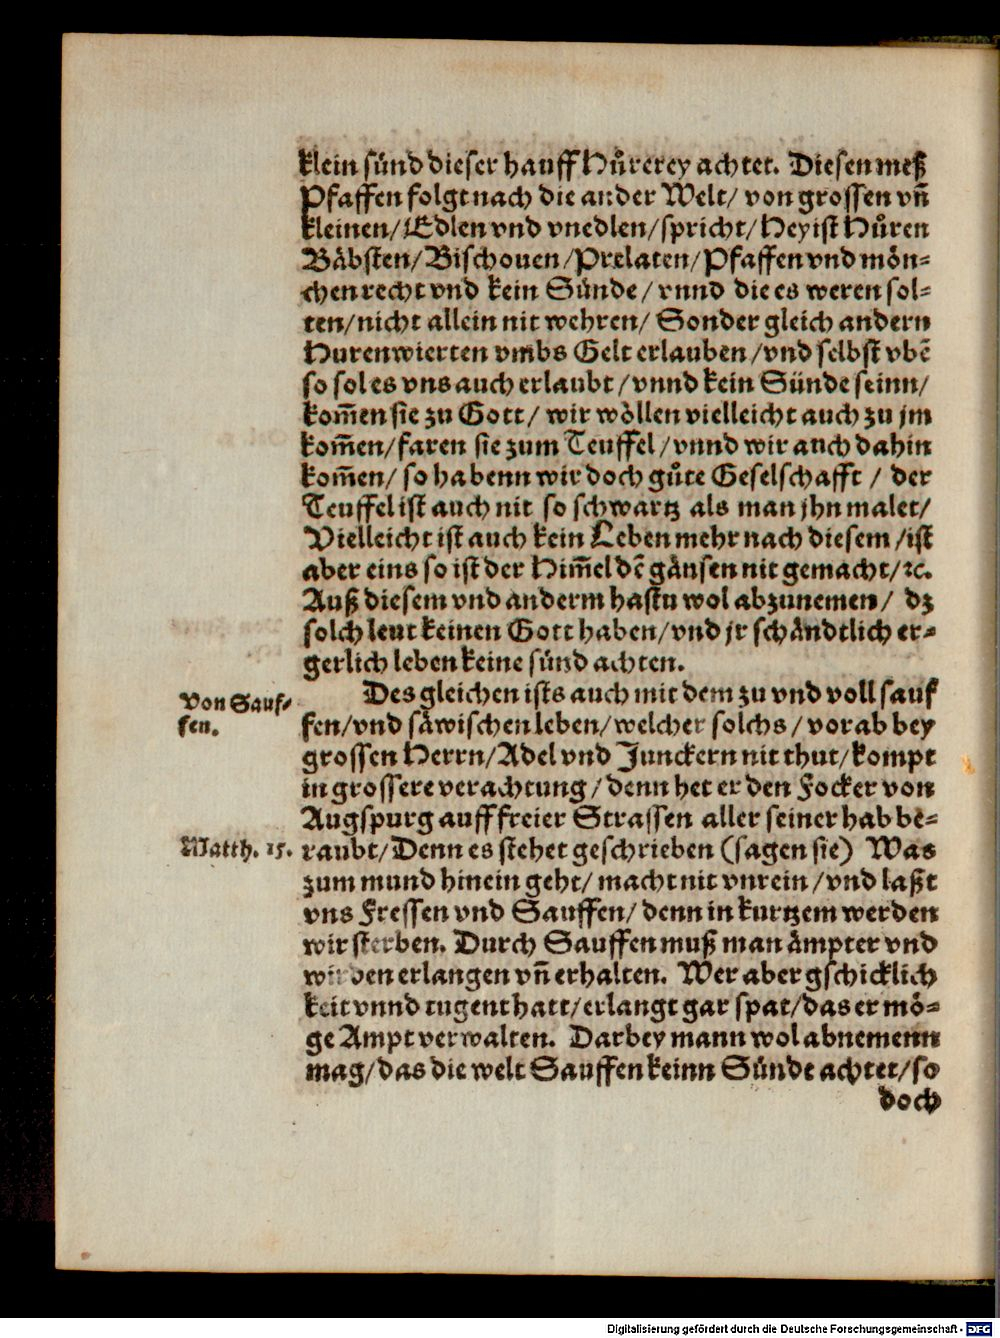 klein sünd dieser hauff Hůrerey achtet. Diesen meß
Pfaffen folgt nach die ander Welt/ von grossen vñ
kleinen/Edlen vnd vnedlen/spricht/Hey ist Hůren
Bäbsten/Bischouen/Prelaten/Pfaffen vnd mön-
chen recht vnd kein Sünde/ vnnd die es weren sol-
ten/nicht allein nit wehren/ Sonder gleich andern
Hurenwierten vmbs Gelt erlauben/vnd selbst vbẽ
so sol es vns auch erlaubt/vnnd kein Sünde seinn/
kom̃en sie zu Gott/ wir wöllen vielleicht auch zu jm
kom̃en/faren sie zum Teuffel/vnnd wir auch dahin
kom̃en/ so habenn wir doch gůte Geselschafft / der
Teuffel ist auch nit so schwartz als man jhn malet/
Vielleicht ist auch kein Leben mehr nach diesem/ist
aber eins so ist der Him̃el dẽ gänsen nit gemacht/ꝛc.
Auß diesem vnd anderm hastu wol abzunemen/ dz
solch leut keinen Gott haben/vnd jr schändtlich er-
gerlich leben keine sünd achten.
Von Sauf-
fen.
Des gleichen ists auch mit dem zu vnd voll sauf
fen/vnd säwischen leben/welcher solchs/vorab bey
grossen Herrn/Adel vnd Junckern nit thut/kompt
in grossere verachtung/denn het er den Focker von
Augspurg auff freier Strassen aller seiner hab be-
Matth. 15.
raubt/Denn es stehet geschrieben (sagen sie) Was
zum mund hinein geht/ macht nit vnrein/vnd laßt
vns Fressen vnd Sauffen/ denn in kurtzem werden
wir sterben. Durch Sauffen muß man ämpter vnd
wirden erlangen vñ erhalten. Wer aber gschicklich
keit vnnd tugent hatt/erlangt gar spat/das er mö-
ge Ampt verwalten. Darbey mann wol abnemenn
mag/das die welt Sauffen keinn Sünde achtet/so
doch
Digitalisierung gefördert durch die Deutsche Forschungsgemeinschaft - DFG